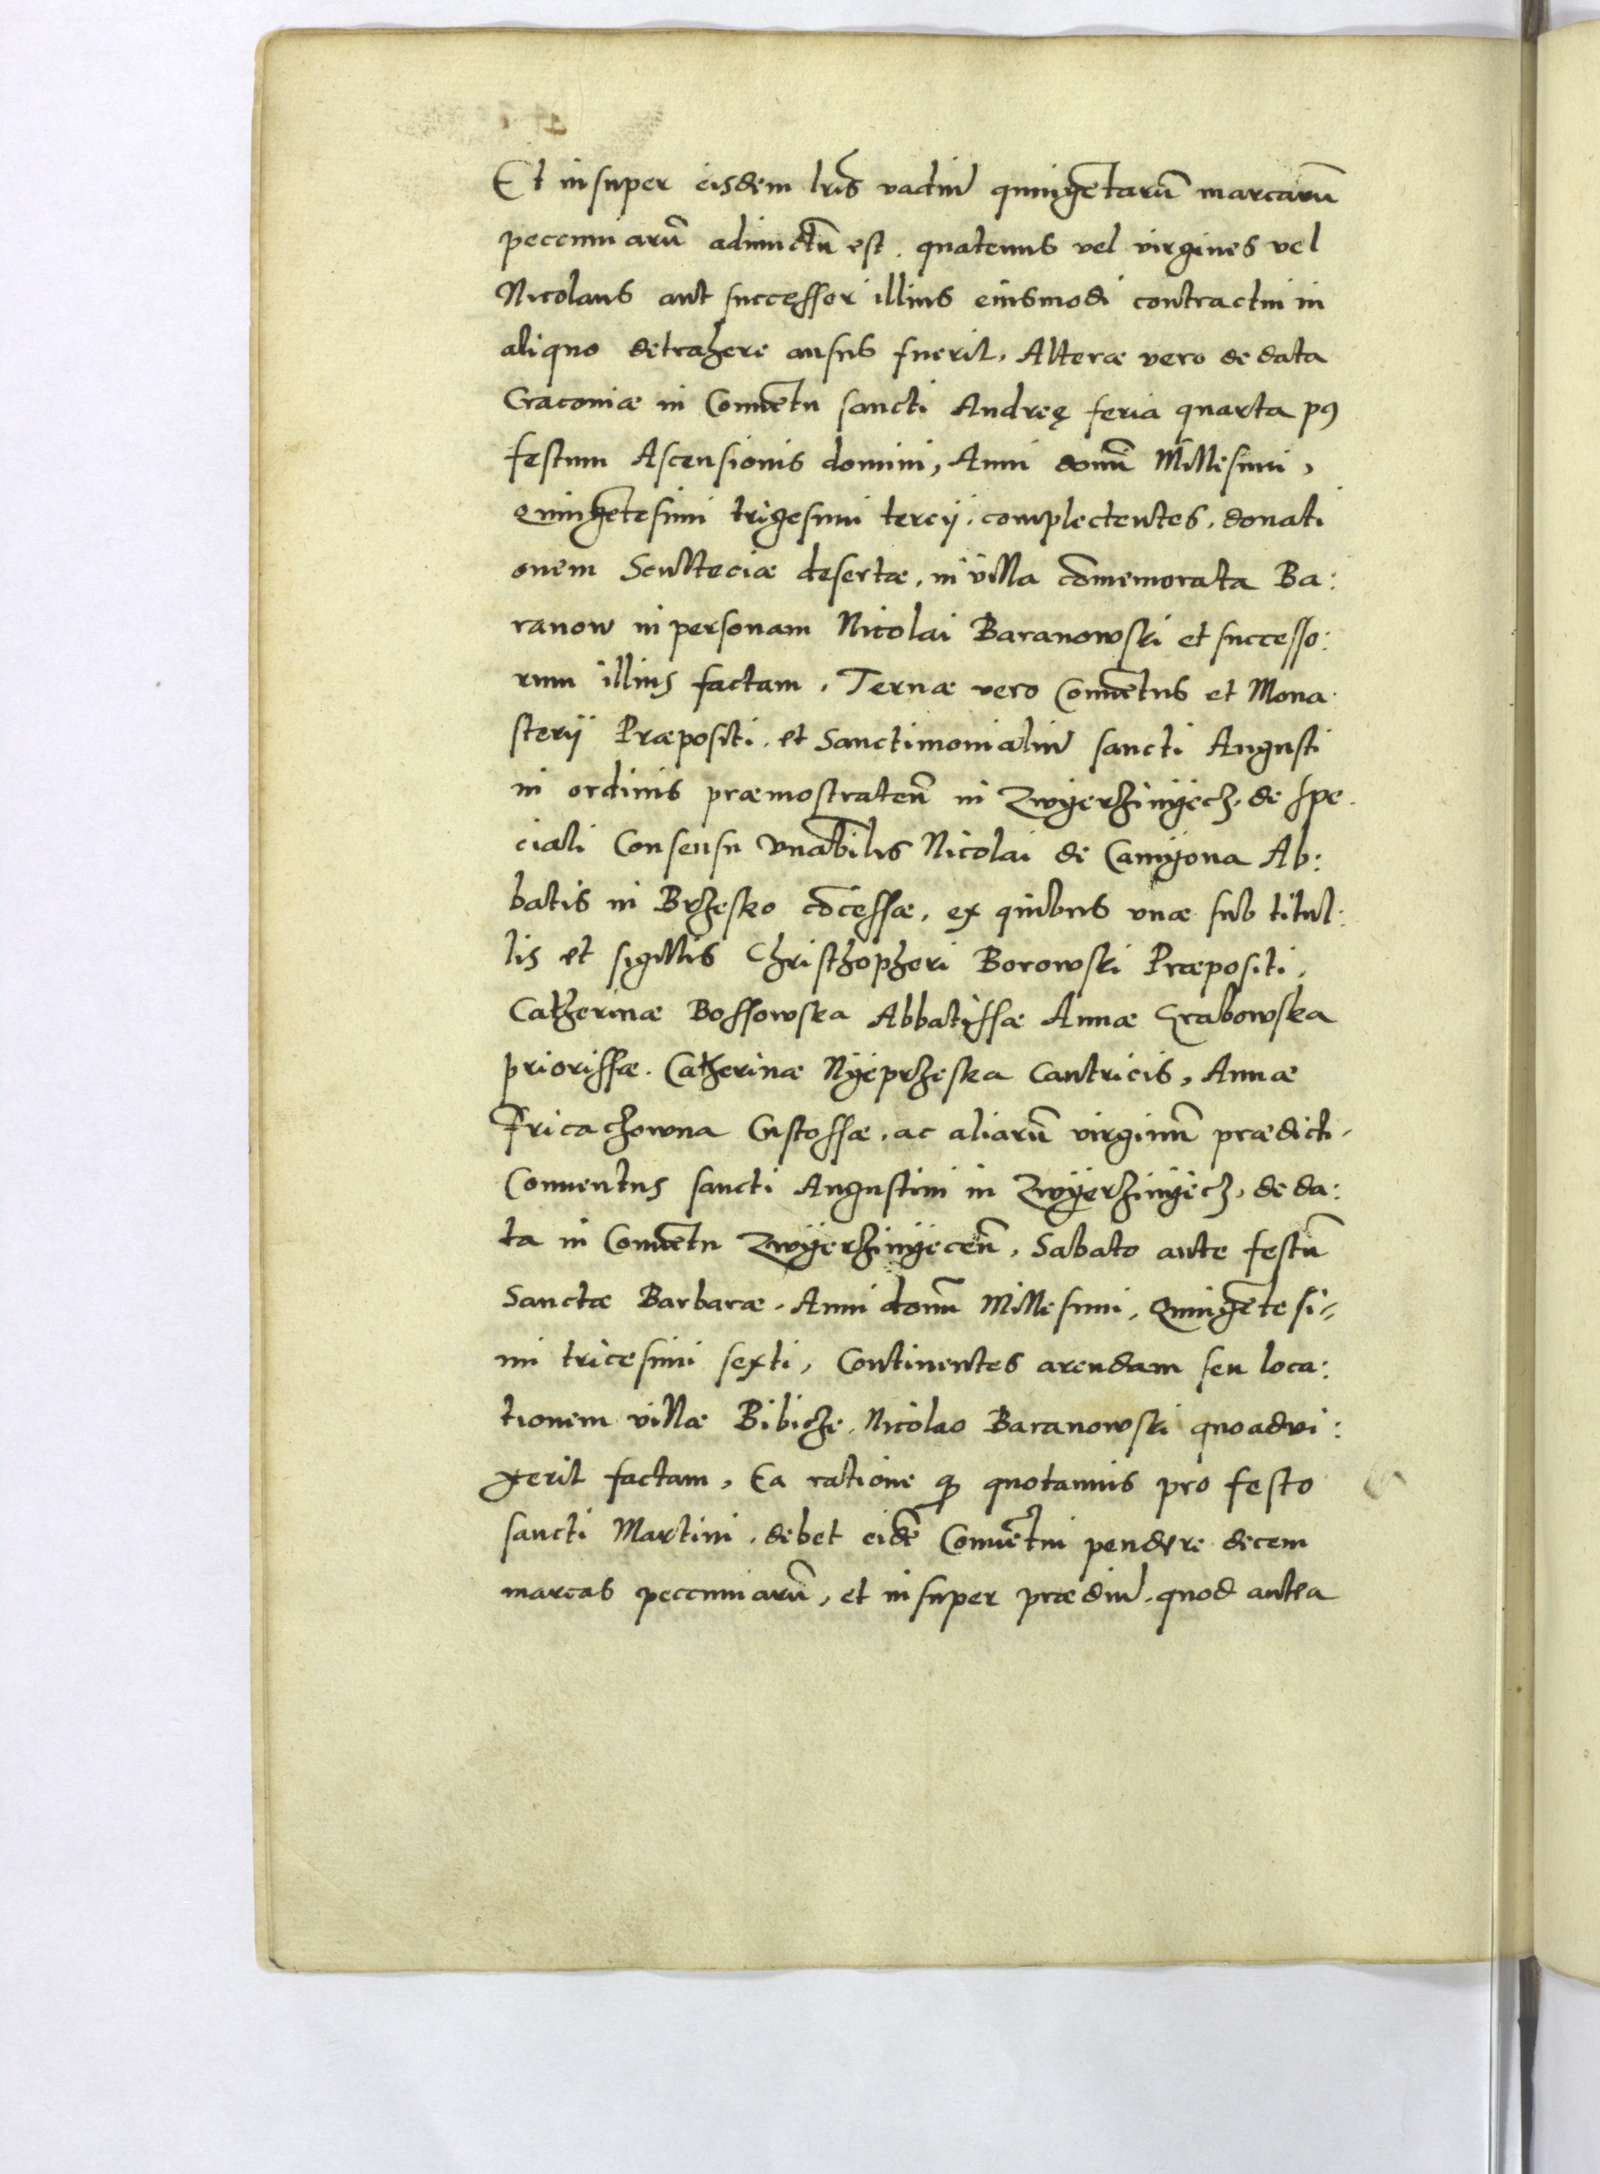 Et insuper eisdem lr̃is vadiũ quingẽtarũ marcarũ
peccuniarũ adiunctũ est. quatenus vel virgines vel
Nicolaus aut successor illius eiusmodi contractui in
aliquo detrahere ausus fuerit, Alteræ vero de data
Cracouiæ in Conuẽtu sancti Andreę feria quarta pꝰ
festum Ascensionis domini, Anni domĩ Millesimi,
Quingẽtesimi trigesimi tercÿ, complectentes, donati
onem Scultteciæ desertæ, in villa cõmemorata Ba:
ranow in personam Nicolai Baranowski et successo:
rum illius factam, Ternæ vero Conuẽtus et Mona
sterÿ Præpositi, et Sanctimonialiũ sancti Augusti
ni ordinis præmostrateñ in Zwÿerzinÿecz, de spe
ciali Consensu Vnãbilis Nicolai de Camÿona Ab:
batis in Brzesko cõcessæ, ex quibus vnæ sub titul:
lis et sigillis Christhopheri Borowski Præpositi,
Catherinæ Bossowska Abbatissæ Annæ Grabowska
priorissæ. Catherinæ Nÿeprzeska Cantricis, Annæ
Fricachowna Custossæ, ac aliarũ virginũ prædicti
Conuentus sancti Augustini in Zwÿerzinÿecz, de da:
ta in Conuẽtu Zwÿerzinÿeceñ, Sabato ante festũ
Sanctæ Barbaræ, Anni domĩ Millesimi, Quingẽtesi-
mi tricesimi sexti, Continentes arendam seu loca:
tionem villæ Bibicze, Nicolao Baranowski quoadvi:
xerit factam, Ea ratione ꝙ quotannis pro festo
sancti Martini, debet eidẽ Conuẽtui pendere decem
marcas peccuniarũ, et insuper prædiũ, quod antea